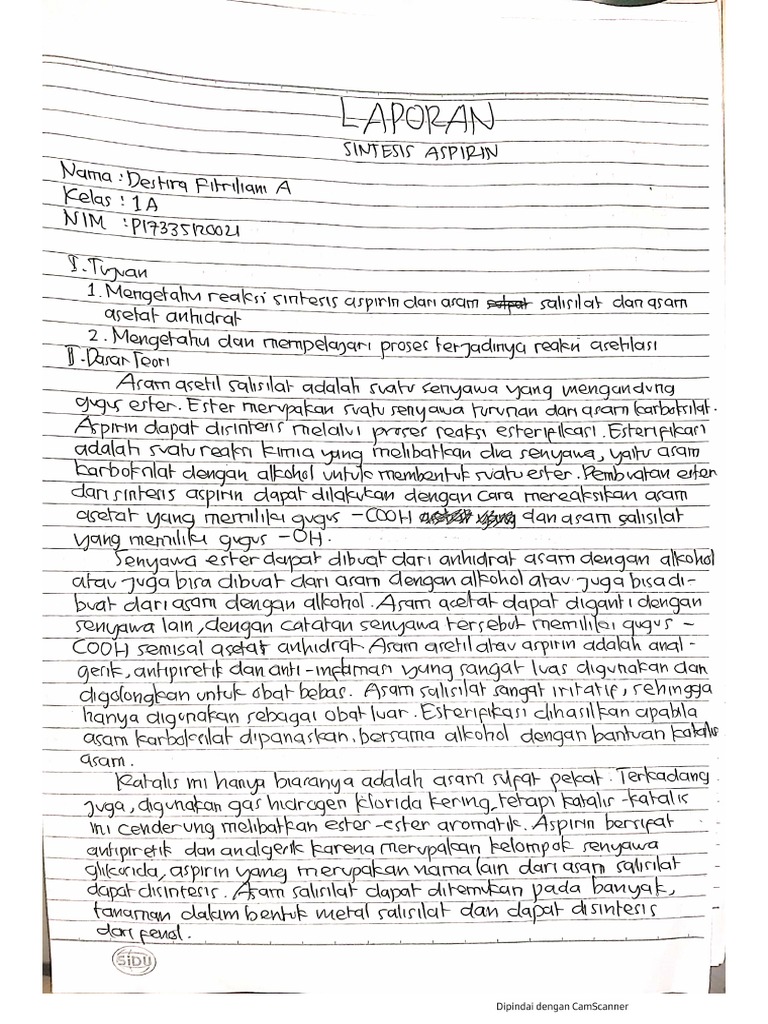 LAPORAN
SINTESIS ASPIRIN
Nama : Destira Fitriliani A
Kelas : 1A
NIM : P17335120021
I. Tujuan
1. Mengetahui reaksi sintesis aspirin dari asam salisilat dan asam
asetat anhidrat
2. Mengetahui dan mempelajari proses terjadinya reaksi asetilasi
II. Dasar Teori
Asam asetil salisilat adalah suatu senyawa yang mengandung
gugus ester. Ester merupakan suatu senyawa turunan dari asam karboksilat.
Aspirin dapat disintesis melalui proses reaksi esterifikasi. Esterifikasi
adalah suatu reaksi kimia yang melibatkan dua senyawa, yaitu asam
karboksilat dengan alkohol untuk membentuk suatu ester. Pembuatan ester
dari sintesis aspirin dapat dilakukan dengan cara mereaksikan asam
asetat yang memiliki gugus -COOH dan asam salisilat
yang memiliki gugus -OH.
Senyawa ester dapat dibuat dari anhidrat asam dengan alkohol
atau juga bisa dibuat dari asam dengan alkohol atau juga bisa di-
buat dari asam dengan alkohol. Asam acetat dapat diganti dengan
senyawa lain, dengan catatan senyawa tersebut memiliki gugus -
COOH semisal asetat anhidrat. Asam asetil atau aspirin adalah anal-
gesik, antipiretik dan anti-inflamasi yang sangat luas digunakan dan
digolongkan untuk obat bebas. Asam salisilat sangat iritatif, sehingga
hanya digunakan sebagai obat luar. Esterifikasi dihasilkan apabila
asam karboksilat dipanaskan, bersama alkohol dengan bantuan katalis
asam.
Katalis ini hanya biasanya adalah asam sulfat pekat. Terkadang
juga, digunakan gas hidrogen klorida kering, tetapi katalis-katalis
ini cenderung melibatkan ester-ester aromatik. Aspirin bersifat
antipiretik dan analgesik karena merupakan kelompok senyawa
glikosida, aspirin yang merupakan nama lain dari asam salisilat
dapat disintesis. Asam salisilat dapat ditemukan pada banyak,
tanaman dalam bentuk metal salisilat dan dapat disintesis
dari fenol.
SiDU
Dipindai dengan CamScanner